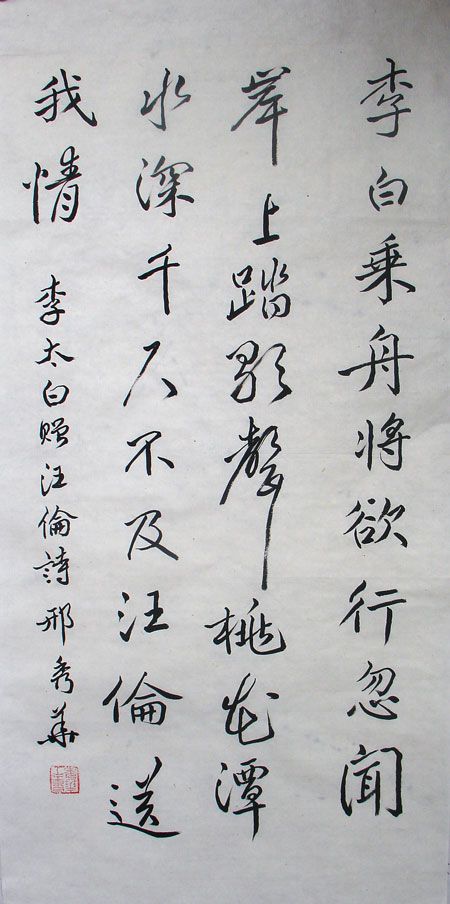 李白乘舟将欲行忽聞
岸上踏歌聲桃花潭
水深千尺不及汪倫送
我情 李太白贈汪倫詩邢秀華